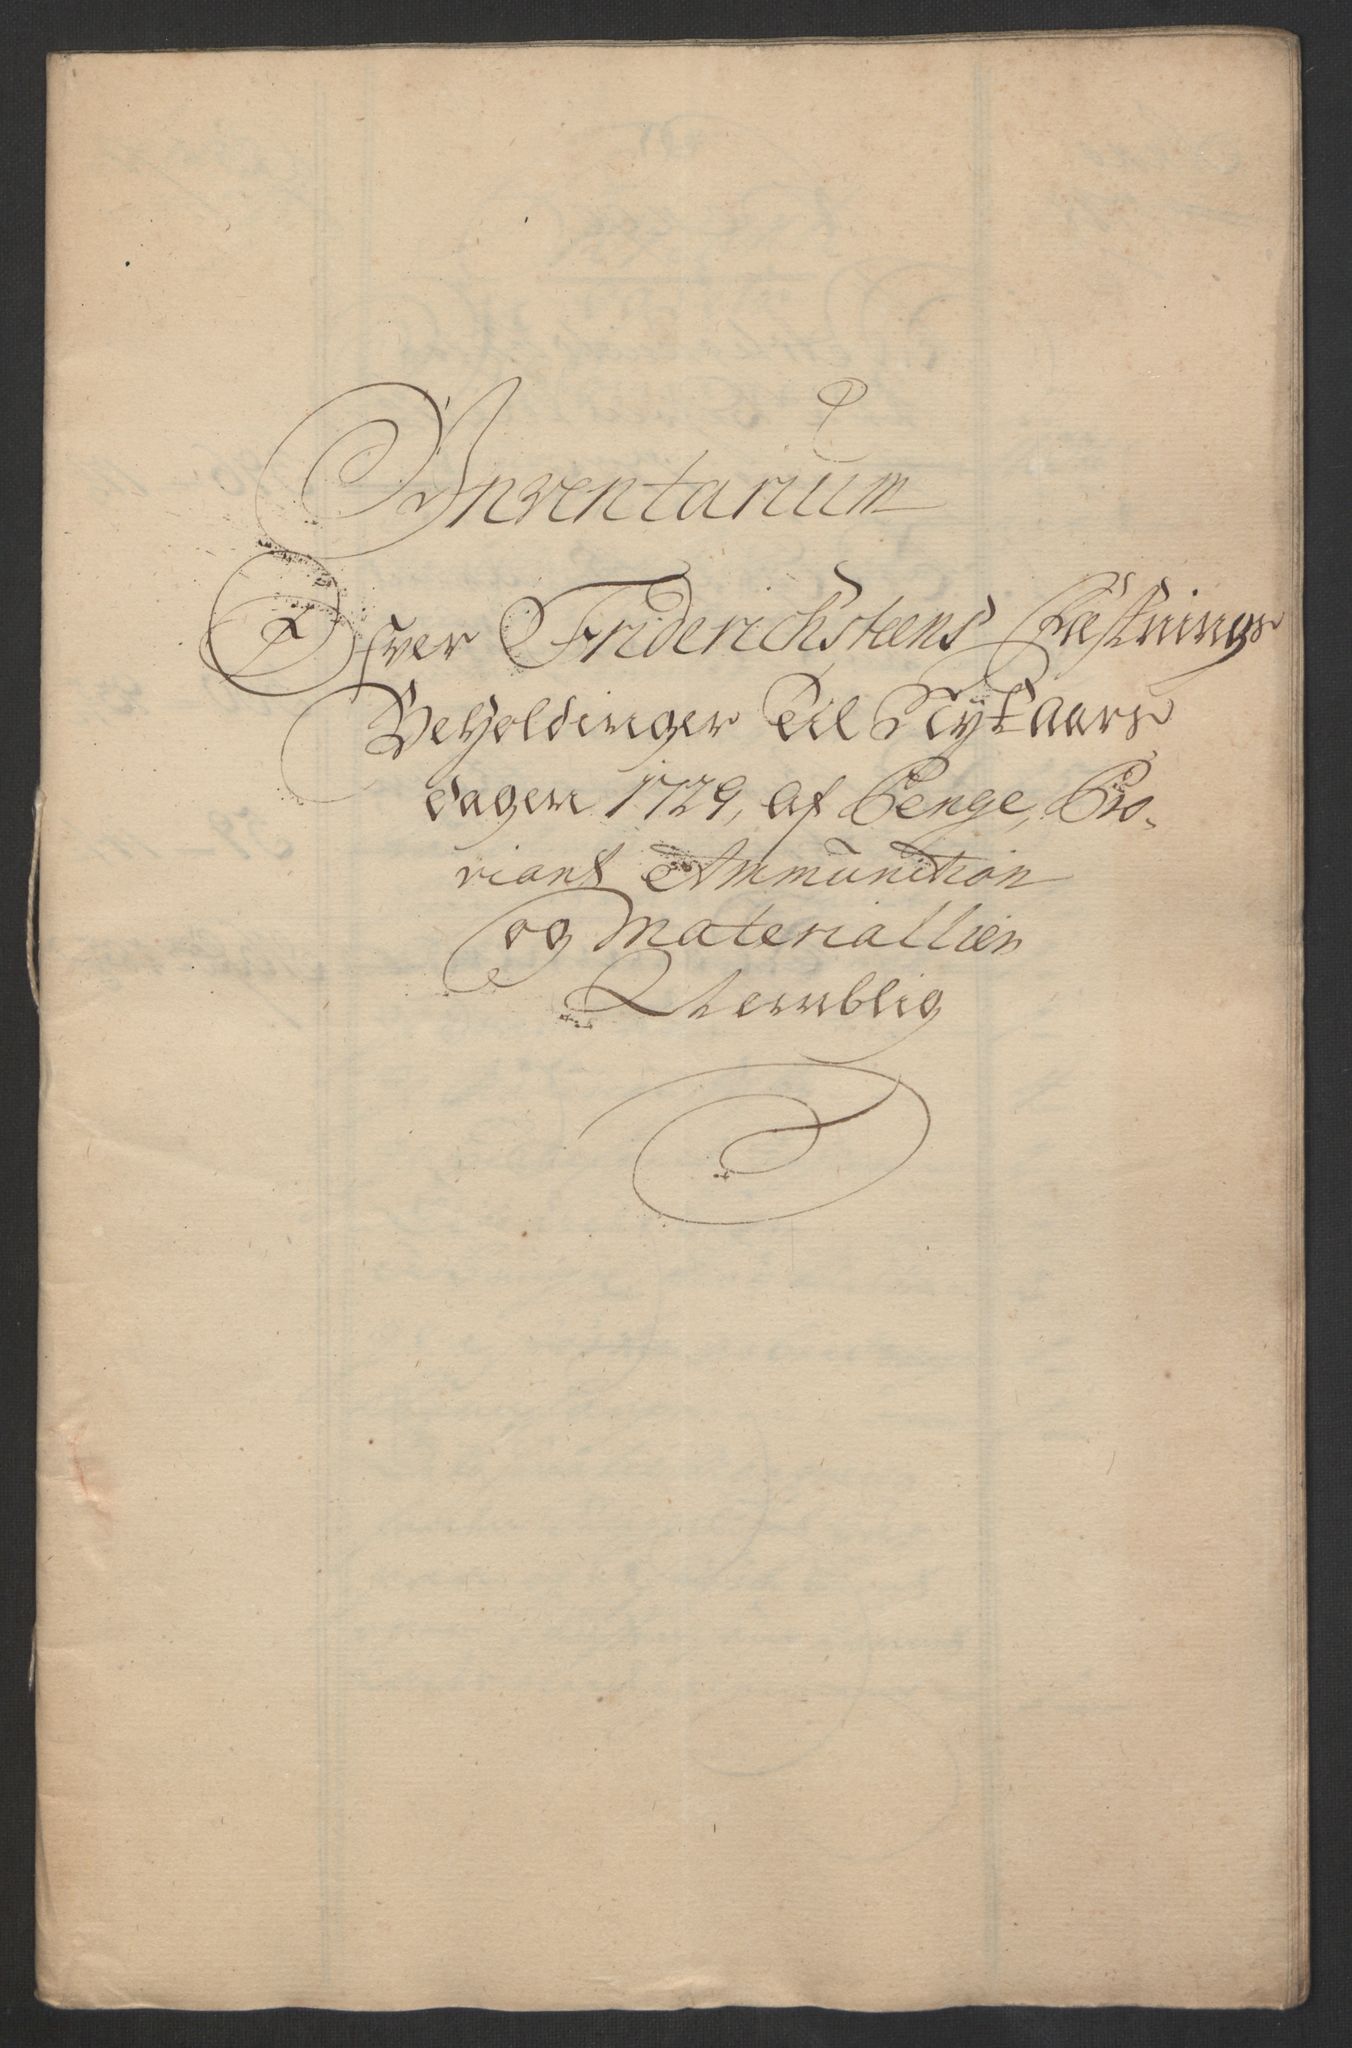 Inventarium
Ofver Friderichsteens Fæstnings
Beholdinger Til Nyt Aars
dagen 1729, af Penge, Pro-
viant Ammunition
og Materiallier